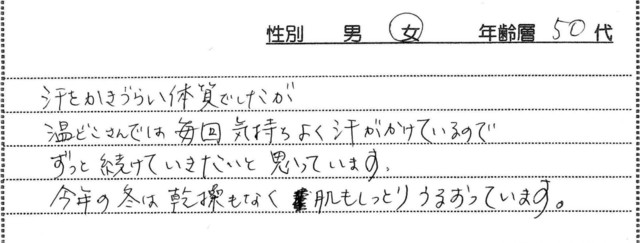 性別　男　女　年齢層 50 代
汗をかきづらい体質でしたが
温どこさんでは毎回気持ちよく汗がかけているので
ずっと続けていきたいと思っています。
今年の冬は乾燥もなく肌もしっとりうるおっています。